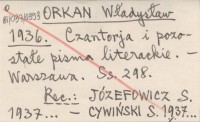 ORKAN Władysław
1936. Czantorja i pozo-
stałe pisma literackie. –
Warszawa. Ss. 298.
Rec.: JÓZEFOWICZ S.
1937... – CYWIŃSKI S. 1937...